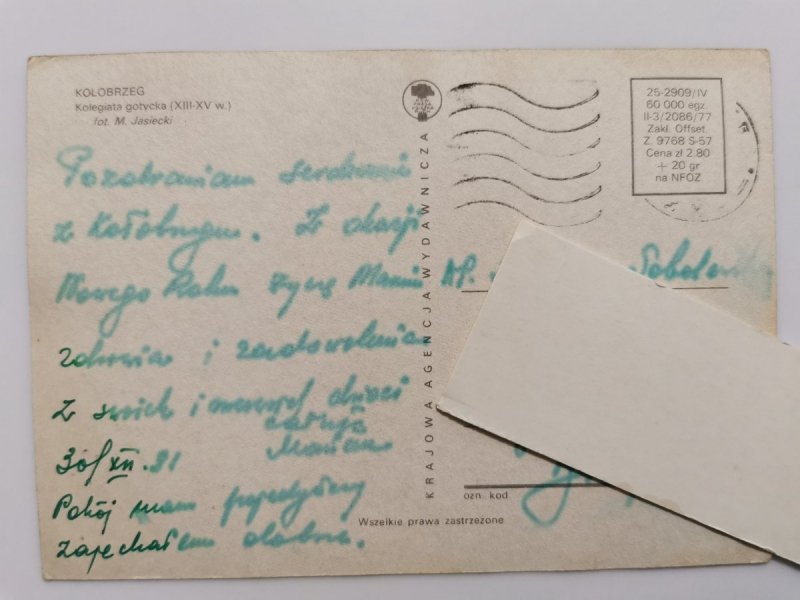 KOŁOBRZEG
Kolegiata gotycka (XIII-XV w.)
fot. M. Jasiecki
Pozdrawiam serdecznie
z Kołobrzegu. Z okazji
Nowego Roku życzę Mamie
zdrowia i zadowolenia
z swich i naszych dzieci
całuję
Marian
30/XII.81
Pokój mam pojedyńczy
zajechałem dobrze.
KRAJOWA AGENCJA WYDAWNICZA
25-2909/IV
60 000 egz.
II-3/2086/77
Zakł. Offset.
Z. 9768 S-57
Cena zł 2.80
+ 20 gr
na NFOZ
ozn. kod
Wszelkie prawa zastrzeżone